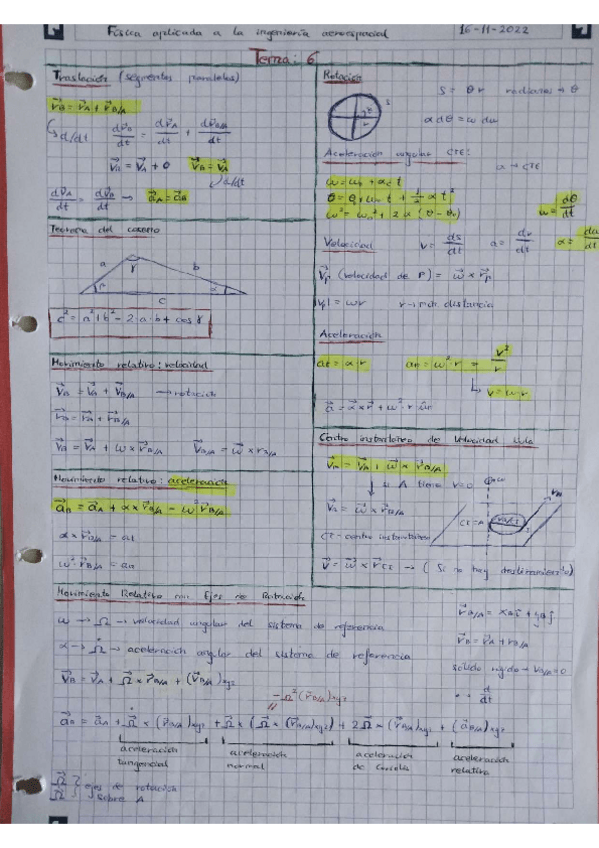 Física aplicada a la ingeniería aeroespacial
16-11-2022
Tema: 6
Traslación (segmentos paralelos)
r⃗B = r⃗A + r⃗B/A
d/dt dr⃗B/dt = dr⃗A/dt + dr⃗B/A/dt
v⃗B = v⃗A + 0 v⃗B = v⃗A
d/dt
dv⃗A/dt = dv⃗B/dt → a⃗A = a⃗B
Teorema del coseno
a b γ
β α
c
c² = a² + b² - 2·a·b + cos γ
Movimiento relativo: velocidad
v⃗B = v⃗A + v⃗B/A → rotación
r⃗B = r⃗A + r⃗B/A
v⃗B = v⃗A + ω × r⃗B/A v⃗B/A = ω⃗ × r⃗B/A
Movimiento relativo: aceleración
a⃗B = a⃗A + α × r⃗B/A - ω² r⃗B/A
α × r⃗B/A = at
ω² · r⃗B/A = an
Rotación
S = θ r radianes → θ
α dθ = ω dω
Aceleración angular CTE:
α → CTE
ω = ω₀ + αc t
θ = θ₀ + ω₀ t + 1/2 α t²
ω² = ω₀² + 2 α (θ - θ₀)
ω = dθ/dt
Velocidad v = ds/dt a = dv/dt α = dω/dt
v⃗P (velocidad de P) = ω⃗ × r⃗P
|vP| = ωr
Aceleración
at = α r an = ω² · r = v²/r
↳ v = ω·r
a⃗ = α⃗ × r⃗ + ω² · r
Centro instantáneo de Velocidad Nula
v⃗B = v⃗A + ω⃗ × r⃗B/A
↓ si A tiene v=0
v⃗B = ω⃗ × r⃗B/A
CI - centro instantáneo
CI = A
v⃗ = ω⃗ × r⃗CI → (Si no hay deslizamiento)
Movimiento Relativo con Ejes de Rotación
ω → Ω → velocidad angular del sistema de referencia
α → Ω̇ → aceleración angular del sistema de referencia
v⃗B = v⃗A + Ω⃗ × r⃗B/A + (v⃗B/A)xyz
- Ω² (r⃗B/A)xyz
a⃗B = a⃗A + Ω̇ × (r⃗B/A)xyz + Ω⃗ × (Ω⃗ × (r⃗B/A)xyz) + 2Ω⃗ × (v⃗B/A)xyz + (a⃗B/A)xyz
aceleración tangencial
aceleración normal
aceleración de Coriolis
aceleración relativa
Ω⃗ Ω̇ } ejes de rotación sobre A
r⃗B = r⃗A + r⃗B/A
sólido rígido → vB/A = 0
d/dt